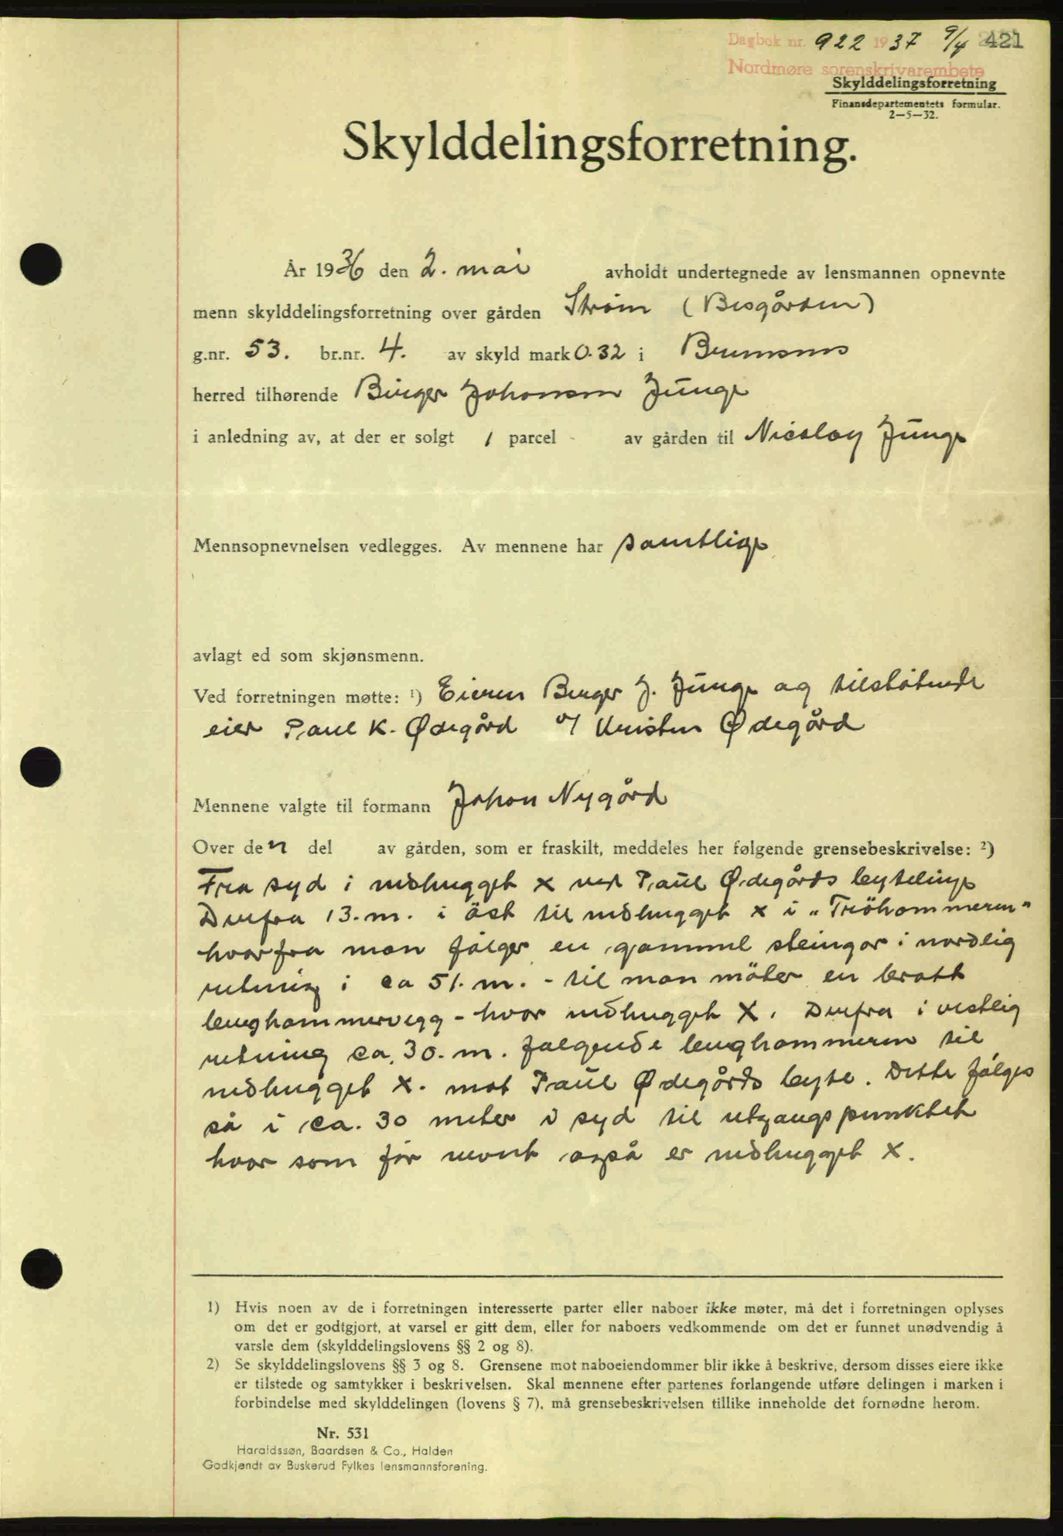 Dagbok nr. 922 1937 9/4 421
Nordmøre sorenskrivarembete
Skylddelingsforretning
Finansdepartementets formular.
2—5—32.
Skylddelingsforretning.
År 1936 den 2. mai avholdt undertegnede av lensmannen opnevnte
menn skylddelingsforretning over gården Strøm (Bosgården)
g.nr. 53. br.nr. 4. av skyld mark 0.32 i Bremsnes
herred tilhørende Birger Johansen Junge
i anledning av, at der er solgt 1 parcel av gården til Nicolay Junge
Mennsopnevnelsen vedlegges. Av mennene har samtlige
avlagt ed som skjønsmenn.
Ved forretningen møtte: ¹) Eieren Birger J. Junge og tilstøtende
eier Paul K. Ødegård v/ Kristen Ødegård
Mennene valgte til formann Johan Nygård
Over den del av gården, som er fraskilt, meddeles her følgende grensebeskrivelse: ²)
Fra syd i nedhugget x ved Paul Ødegårds bytelinje
Derfra 13. m. i öst til nedhugget x i "Triöhammeren"
hvorfra man følger en gammel steingar i nordlig
retning i ca 51. m. - til man möter en bratt
berghammervegg - hvor nedhugget X. Derfra i vestlig
retning ca. 30. m. følgende berghammeren til
nedhugget X. mot Paul Ødegårds byte. Dette følges
så i ca. 30 meter i syd til utgangspunktet
hvor som før nevnt også er nedhugget X.
1) Hvis noen av de i forretningen interesserte parter eller naboer ikke møter, må det i forretningen oplyses
om det er godtgjort, at varsel er gitt dem, eller for naboers vedkommende om det er funnet unødvendig å
varsle dem (skylddelingslovens §§ 2 og 8).
2) Se skylddelingslovens §§ 3 og 8. Grensene mot naboeiendommer blir ikke å beskrive, dersom disses eiere ikke
er tilstede og samtykker i beskrivelsen. Skal mennene efter partenes forlangende utføre delingen i marken i
forbindelse med skylddelingen (lovens § 7), må grensebeskrivelsen tillike inneholde det fornødne herom.
Nr. 531
Haraldssøn, Baardsen & Co., Halden
Godkjendt av Buskerud Fylkes lensmannsforening.